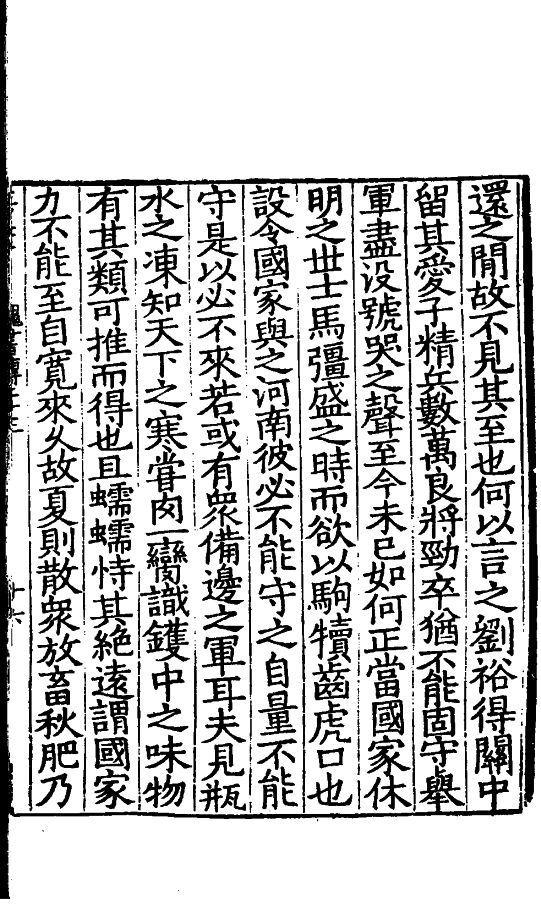 還之閒故不見其至也何以言之劉裕得關中
留其愛子精兵數萬良將勁卒猶不能固守舉
軍盡没號哭之聲至今未已如何正當國家休
明之世士馬彊盛之時而欲以駒犢齒虎口也
設令國家與之河南彼必不能守之自量不能
守是以必不來若或有衆備邊之軍耳夫見瓶
水之凍知天下之寒甞肉一臠識鑊中之味物
有其類可推而得也且蠕蠕恃其絶遠謂國家
力不能至自寛來久故夏則散衆放畜秋肥乃
魏書傳二十三
十六